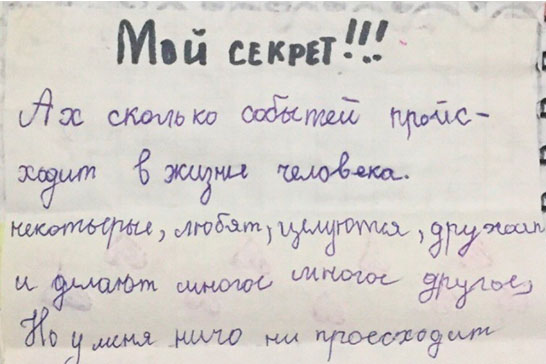 Мой СЕКРЕТ!!!
Ах сколько событей пройс-
ходит в жизне человека.
некотырые, любят, целуются, дружат
и делают многое многое другое,
Но у меня ничо ни проесходит